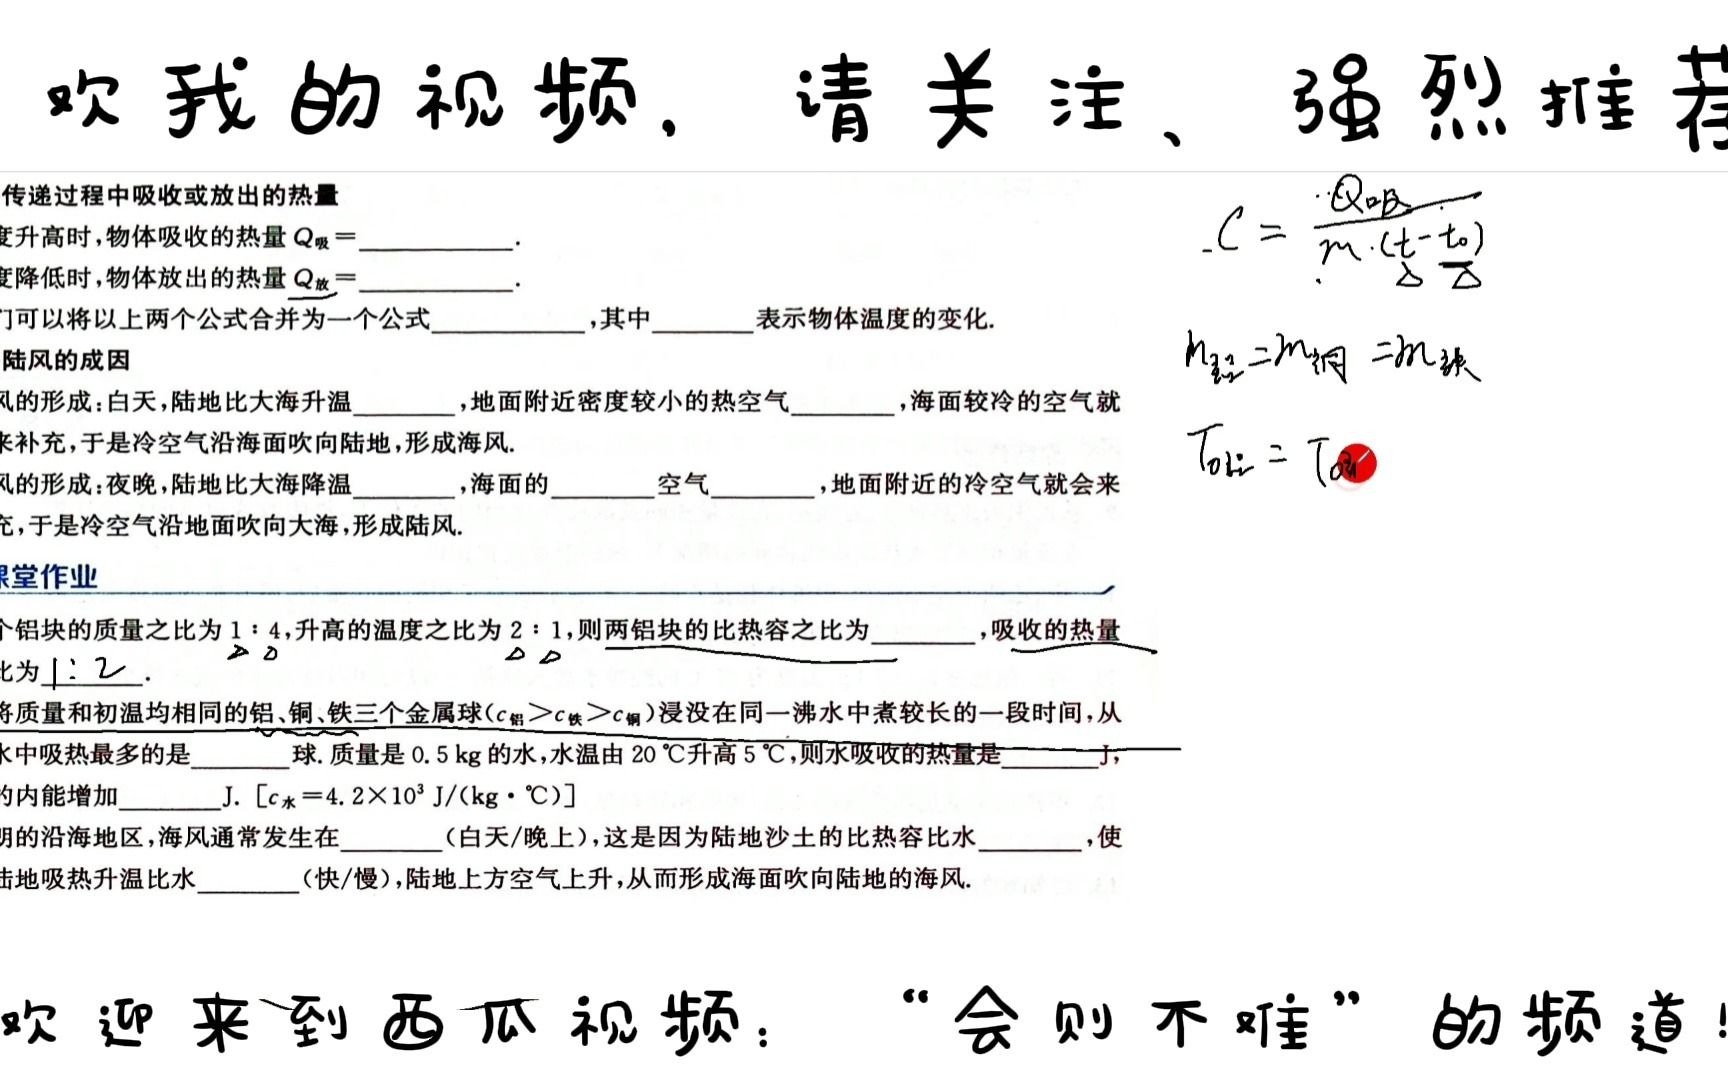 欢我的视频，请关注、强烈推荐
传递过程中吸收或放出的热量
度升高时,物体吸收的热量Q吸=____.
度降低时,物体放出的热量Q放=____.
门可以将以上两个公式合并为一个公式____,其中____表示物体温度的变化.
陆风的成因
风的形成:白天,陆地比大海升温____,地面附近密度较小的热空气____,海面较冷的空气就
来补充,于是冷空气沿海面吹向陆地,形成海风.
风的形成:夜晚,陆地比大海降温____,海面的____空气____,地面附近的冷空气就会来
充,于是冷空气沿地面吹向大海,形成陆风.
课堂作业
个铝块的质量之比为1∶4,升高的温度之比为2∶1,则两铝块的比热容之比为____,吸收的热量
比为1:2.
将质量和初温均相同的铝、铜、铁三个金属球(c铝>c铁>c铜)浸没在同一沸水中煮较长的一段时间,从
水中吸热最多的是____球.质量是0.5 kg的水,水温由20 ℃升高5 ℃,则水吸收的热量是____J,
的内能增加____J.[c水=4.2×10³ J/(kg·℃)]
明的沿海地区,海风通常发生在____(白天/晚上),这是因为陆地沙土的比热容比水____,使
陆地吸热升温比水____(快/慢),陆地上方空气上升,从而形成海面吹向陆地的海风.
C = Q吸 / m·(t-t₀)
m铝=m铜=m铁
欢迎来到西瓜视频：“会则不难”的频道！